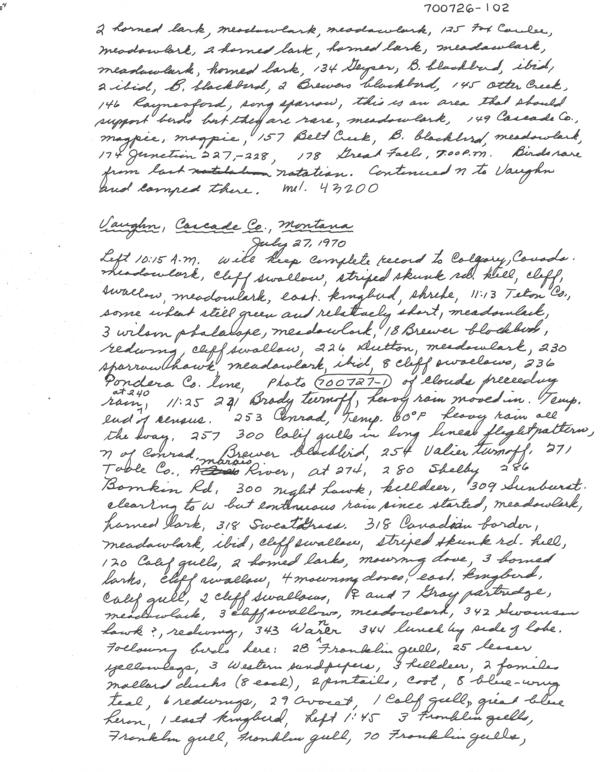 700726-102
2 horned lark, meadowlark, meadowlark, 125 Fox Coulee,
meadowlark, 2 horned lark, horned lark, meadowlark,
meadowlark, horned lark, 134 Geyser, B. blackbird, ibid,
2 ibid, B. blackbird, 2 Brewers blackbird, 145 Otter Creek,
146 Raynesford, song sparrow, this is an area that should
support birds but they are rare, meadowlark, 149 Cascade Co.,
magpie, magpie, 157 Belt Creek, B. blackbird, meadowlark,
174 Junction 227,-228, 178 Great Falls, 7:00 P.M. Birds rare
from last notation. Continued N to Vaughn
and camped there. mi. 43200
Vaughn, Cascade Co., Montana
July 27, 1970
Left 10:15 A.M. will keep complete record to Calgary, Canada.
meadowlark, cliff swallow, striped skunk rd. kill, cliff,
swallow, meadowlark, east. kingbird, shrike, 11:13 Teton Co.,
some wheat still green and relatively short, meadowlark,
3 wilson phalarope, meadowlark, 18 Brewer blackbird,
redwing, cliff swallow, 226 Dutton, meadowlark, 230
sparrow hawk, meadowlark, ibid, 8 cliff swallows, 236
Pondera Co. line, Photo 700727-1 of clouds preceeding
rain, at 240 11:25 241 Brady turnoff, heavy rain moved in. Temp.
end of census. 253 Conrad, Temp. 60°F heavy rain all
the way. 257 300 Calif gulls in long linear flight pattern,
N of Conrad, Brewer blackbird, 254 Valier turnoff. 271
Toole Co., Marais River, at 274, 280 Shelby 286
Bomkin Rd, 300 night hawk, killdeer, 309 Sunburst.
clearing to W but continuous rain since started, meadowlark,
horned lark, 318 SweatGrass. 318 Canadian border,
meadowlark, ibid, cliff swallow, striped skunk rd. kill,
120 Calif gulls, 2 horned larks, mourning dove, 3 horned
larks, cliff swallow, 4 mourning doves, east. kingbird,
Calif gull, 2 cliff swallows, ♀ and 7 Gray partridge,
meadowlark, 3 cliff swallows, meadowlark, 342 Swainson
hawk ?, redwing, 343 Warner 344 lunch by side of lake.
Following birds here: 28 Franklin gulls, 25 lesser
yellowlegs, 3 Western sandpipers, 3 killdeer, 2 families
mallard ducks (8 each), 2 pintails, coot, 8 blue-wing
teal, 6 redwings, 29 avocet, 1 Calif gull, great blue
heron, 1 east kingbird, Left 1:45 3 Franklin gulls,
Franklin gull, Franklin gull, 70 Franklin gulls,